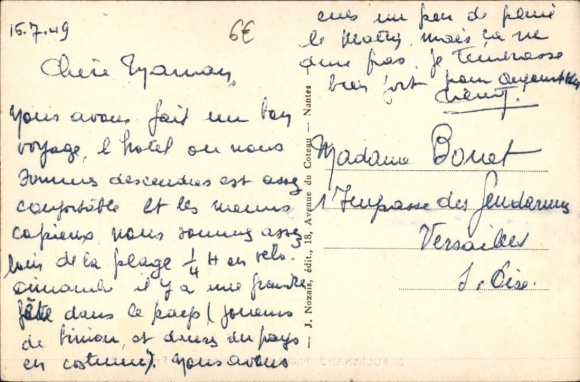 15.7.49
6€
Chère Maman,
Nous avons fait un bon
voyage, l'hotel ou nous
sommes descendus est assez
confortable et les menus
copieux, nous sommes assez
loin de la plage 1/4 H en velo.
dimanche il y a une grande
fête dans le pays (joueurs
de biniou, et danses du pays
en costume). Nous avons
eues un peu de pluie
le matin, mais ça ne
dure pas, je t'embrasse
bien fort pour aujourd'hui
J. Nozais, édit., 18, Avenue du Coteau — Nantes
Madame Bonet
Impasse des Gendarmes
Versailles
S. Oise.